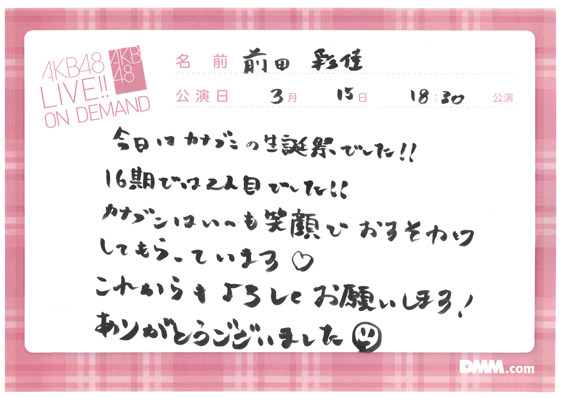 AKB48
LIVE!!
ON DEMAND
AKB
48
名前 前田 彩佳
公演日 3月 15日 18:30 公演
今日はカナブンの生誕祭でした!!
16期では2人目でした!!
カナブンはいつも笑顔でおすそわけ
してもらっています♡
これからもよろしくお願いします!
ありがとうございました☺
DMM.com